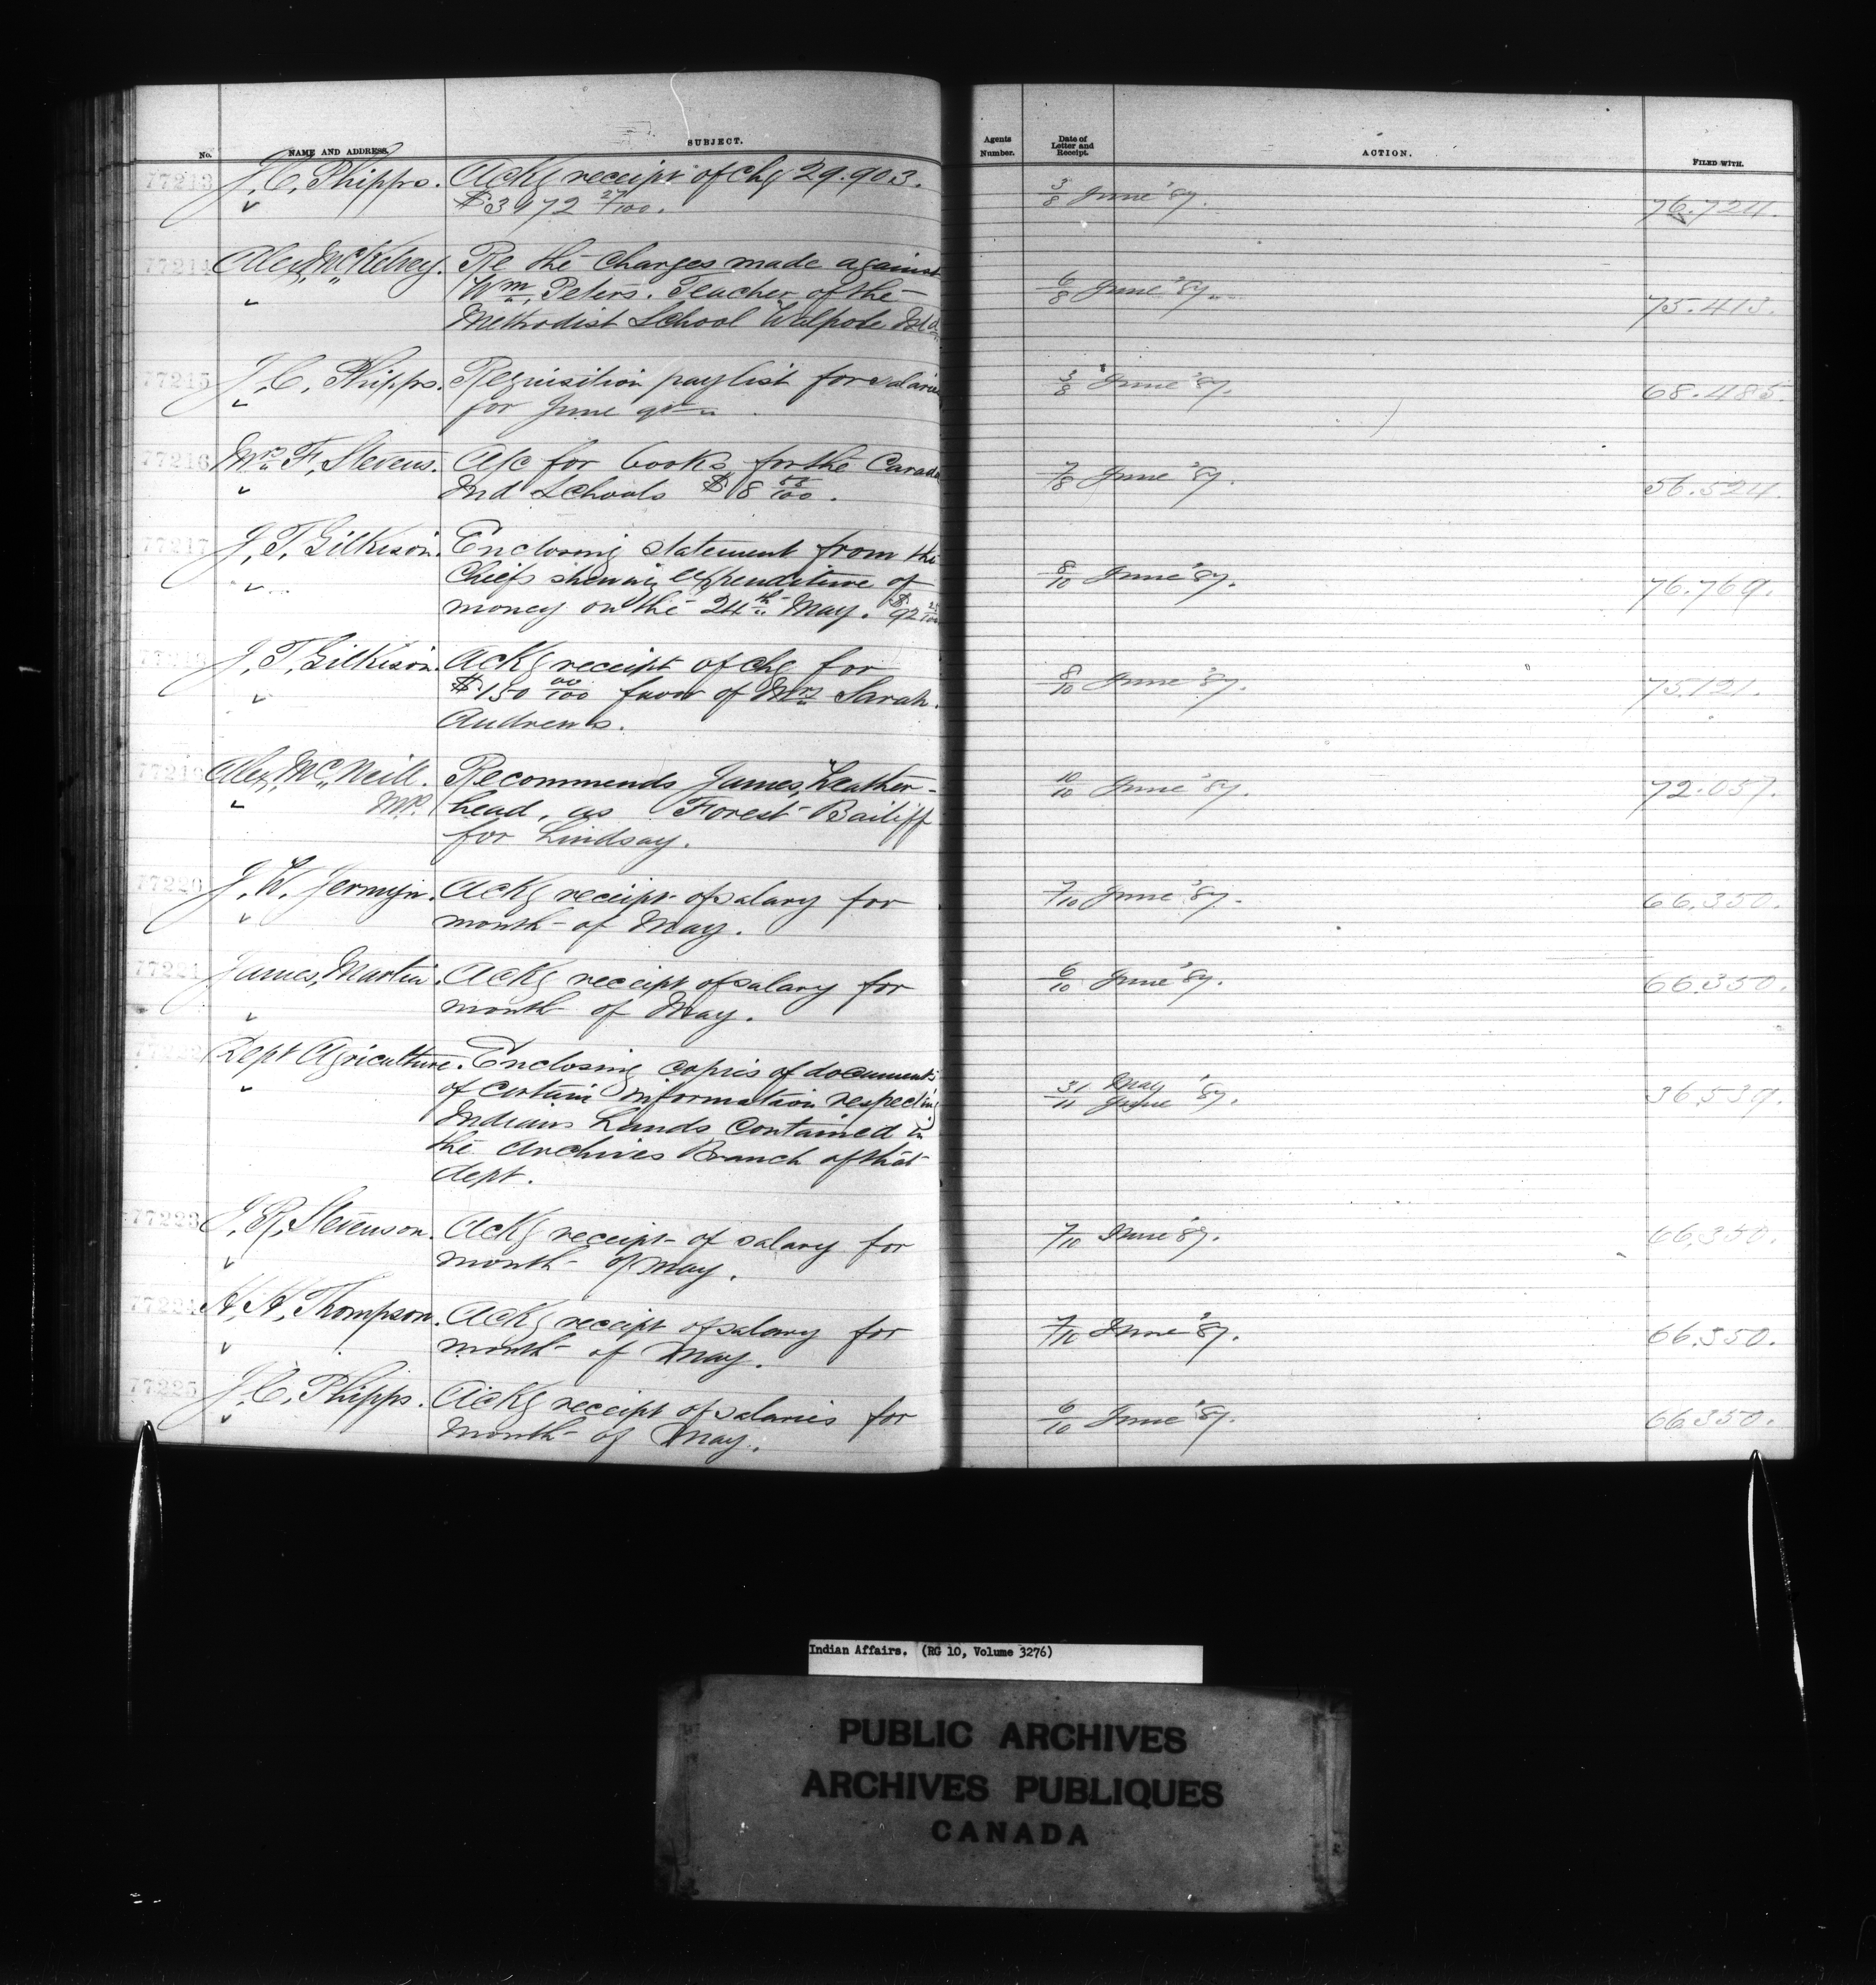 No.
NAME AND ADDRESS.
SUBJECT.
Agents Number.
Date of Letter and Receipt.
ACTION.
FILED WITH.
77213 J. C. Phipps. Ackg receipt of chq 29.903.
$3972 27/100.
3/8 June '87.
76.724.
77214 Alex, McKelvey. Re the charges made against
Wm Peters. Teacher of the
Methodist School Walpole Isld
6/8 June '87.
75.413.
77215 J. C. Phipps. Requisition pay list for salaries
for June qr
3/8 June '87.
68.485.
77216 Mrs F. Stevens. A/c for books for the Carad
Ind Schools $18
7/8 June '87.
56.524.
77217 J. T. Gilkison. Enclosing statement from the
Chiefs shewing expenditure of
money on the 24th May. $92 25/100
8/10 June '87.
76.769.
J. T. Gilkison. Ackg receipt of chq for
$150 00/100 favor of Mrs Sarah
Andrews.
8/10 June '87.
75.121.
77219 Alex, McNeill. Recommends James, Leather-
MP. head, as Forest Bailiff
for Lindsay.
10/10 June '87.
72.057.
77220 J. W. Jermyn. Ackg receipt of salary for
month of May.
7/10 June '87.
66.350.
77221 James, Martin. Ackg receipt of salary for
month of May.
6/10 June '87.
66.350.
77222 Dept Agriculture. Enclosing copies of documents
of certain information respecting
Indians Lands contained in
the Archives Branch of that
dept.
31/11 May June '87.
36.539.
77223 J. R. Stevenson. Ackg receipt of salary for
month of May.
7/10 June '87.
66.350.
77224 H. H. Thompson. Ackg receipt of salary for
month of May.
7/10 June '87.
66.350.
77225 J. C. Phipps. Ackg receipt of salaries for
Month of May.
6/10 June '87.
66.350.
Indian Affairs. (RG 10, Volume 3276)
PUBLIC ARCHIVES
ARCHIVES PUBLIQUES
CANADA